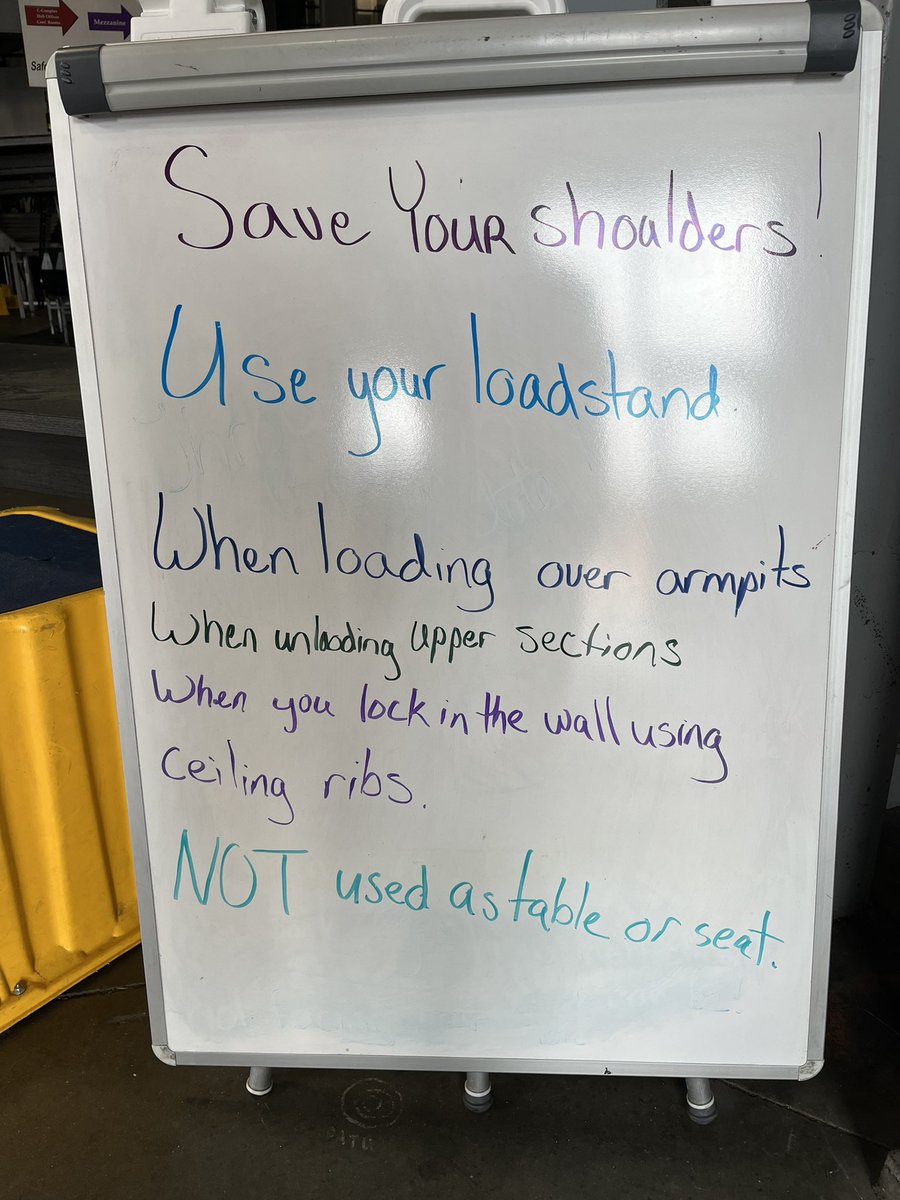 E-Complex
Conf. Rooms
Mezzanine
Save Your shoulders!
Use your loadstand
When loading over armpits
When unloading upper sections
When you lock in the wall using
ceiling ribs.
NOT used as table or seat.